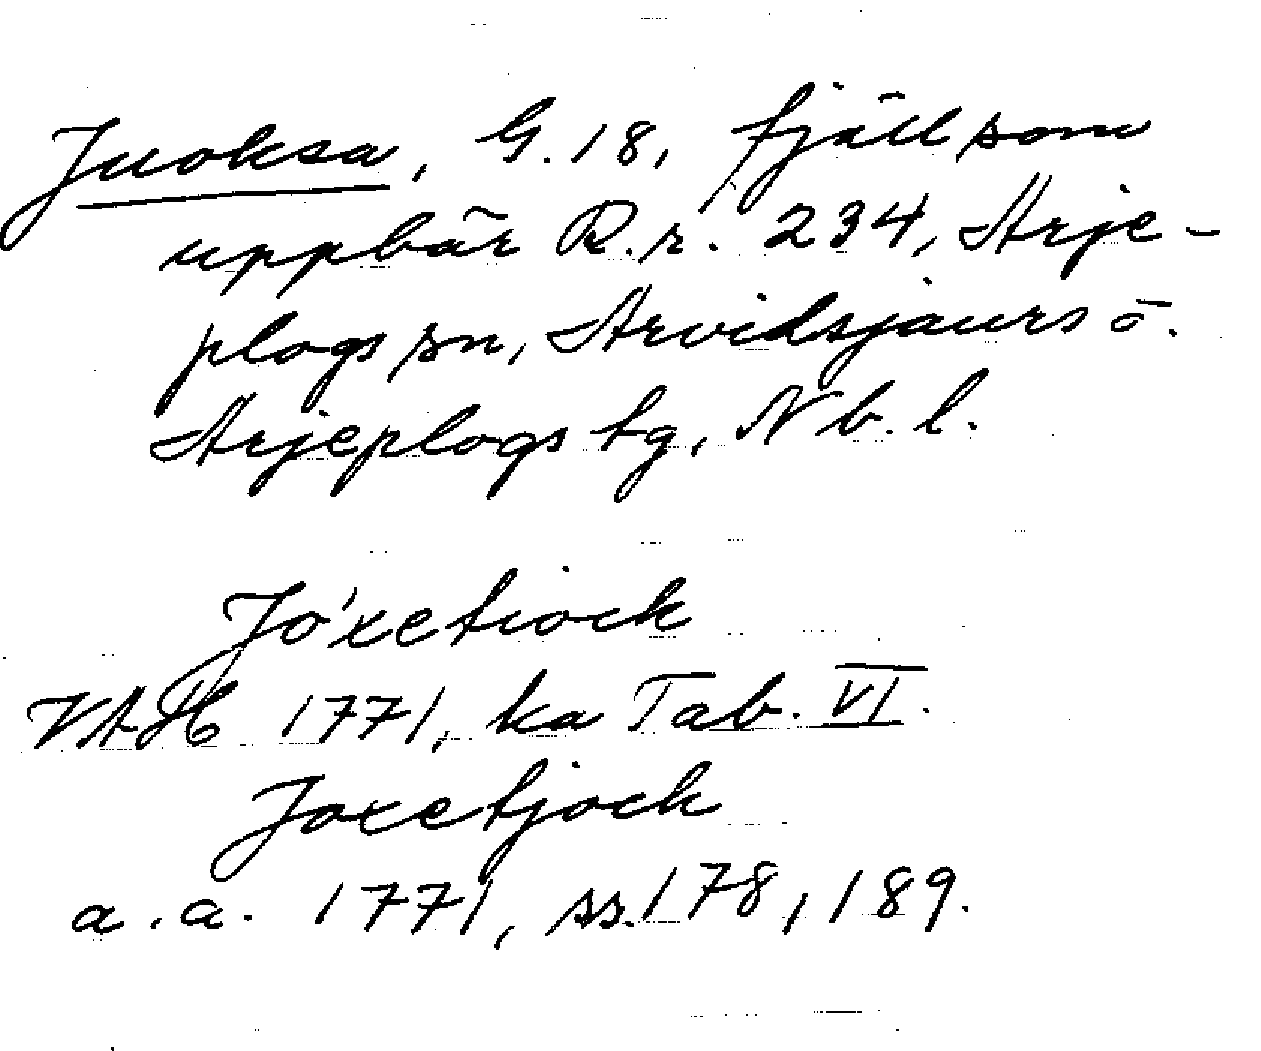 Juoksa, G. 18, fjäll som
uppbär R.r. 234, Arje-
plogs sn, Arvidsjaurs o.
Arjeplogs tg, Nb. l.
Jo'xetiock
VAH 1771, ka Tab. VI.
Joxetjock
a. a. 1771, ss. 178, 189.